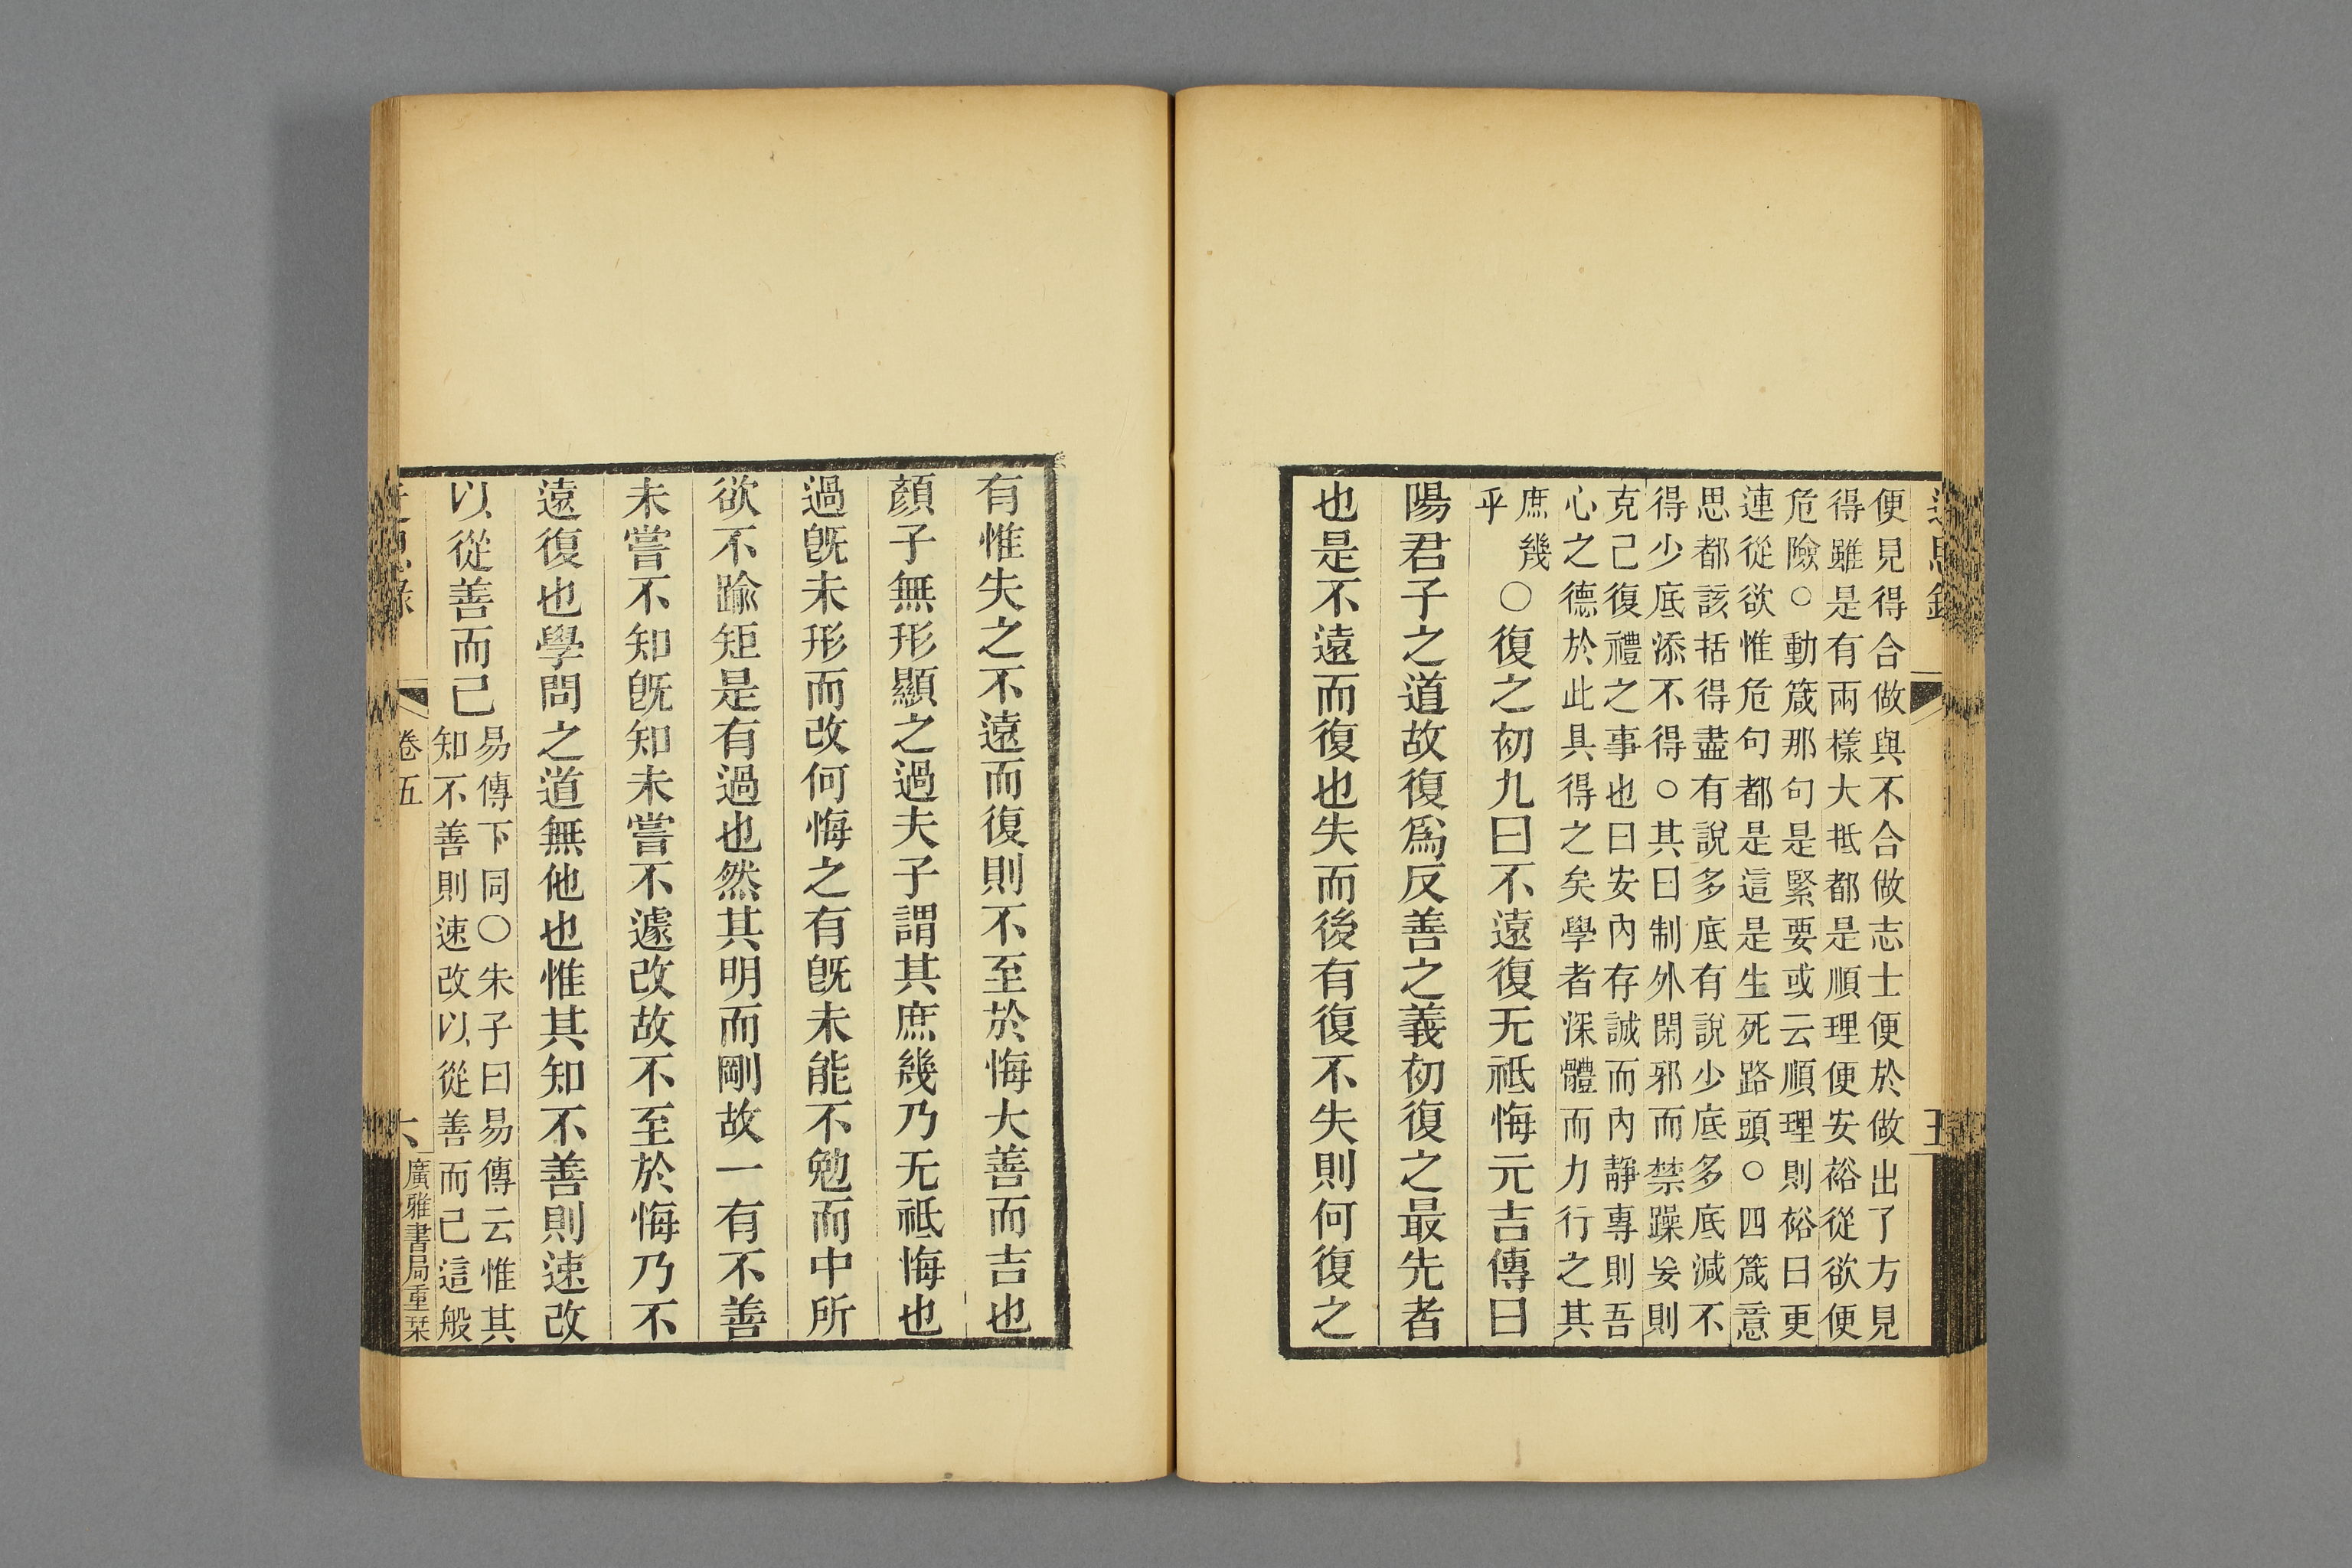 便見得合做與不合做志士便於做出了方見
得雖是有兩樣大抵都是順理便安裕從欲便
危險○動箴那句是緊要或云順理則裕曰更
連從欲惟危句都是這是生死路頭○四箴意
思都該括得盡有說多底有說少底多底減不
得少底添不得○其曰制外閑邪而禁躁妄則
克己復禮之事也曰安內存誠而內靜專則吾
心之德於此具得之矣學者深體而力行之其
庶幾
乎
○復之初九曰不遠復无祗悔元吉傳曰
陽君子之道故復爲反善之義初復之最先者
也是不遠而復也失而後有復不失則何復之
有惟失之不遠而復則不至於悔大善而吉也
顏子無形顯之過夫子謂其庶幾乃无祗悔也
過旣未形而改何悔之有旣未能不勉而中所
欲不踰矩是有過也然其明而剛故一有不善
未嘗不知旣知未嘗不遽改故不至於悔乃不
遠復也學問之道無他也惟其知不善則速改
以從善而已
易傳下同○朱子曰易傳云惟其
知不善則速改以從善而已這般
卷五
六
廣雅書局重栞